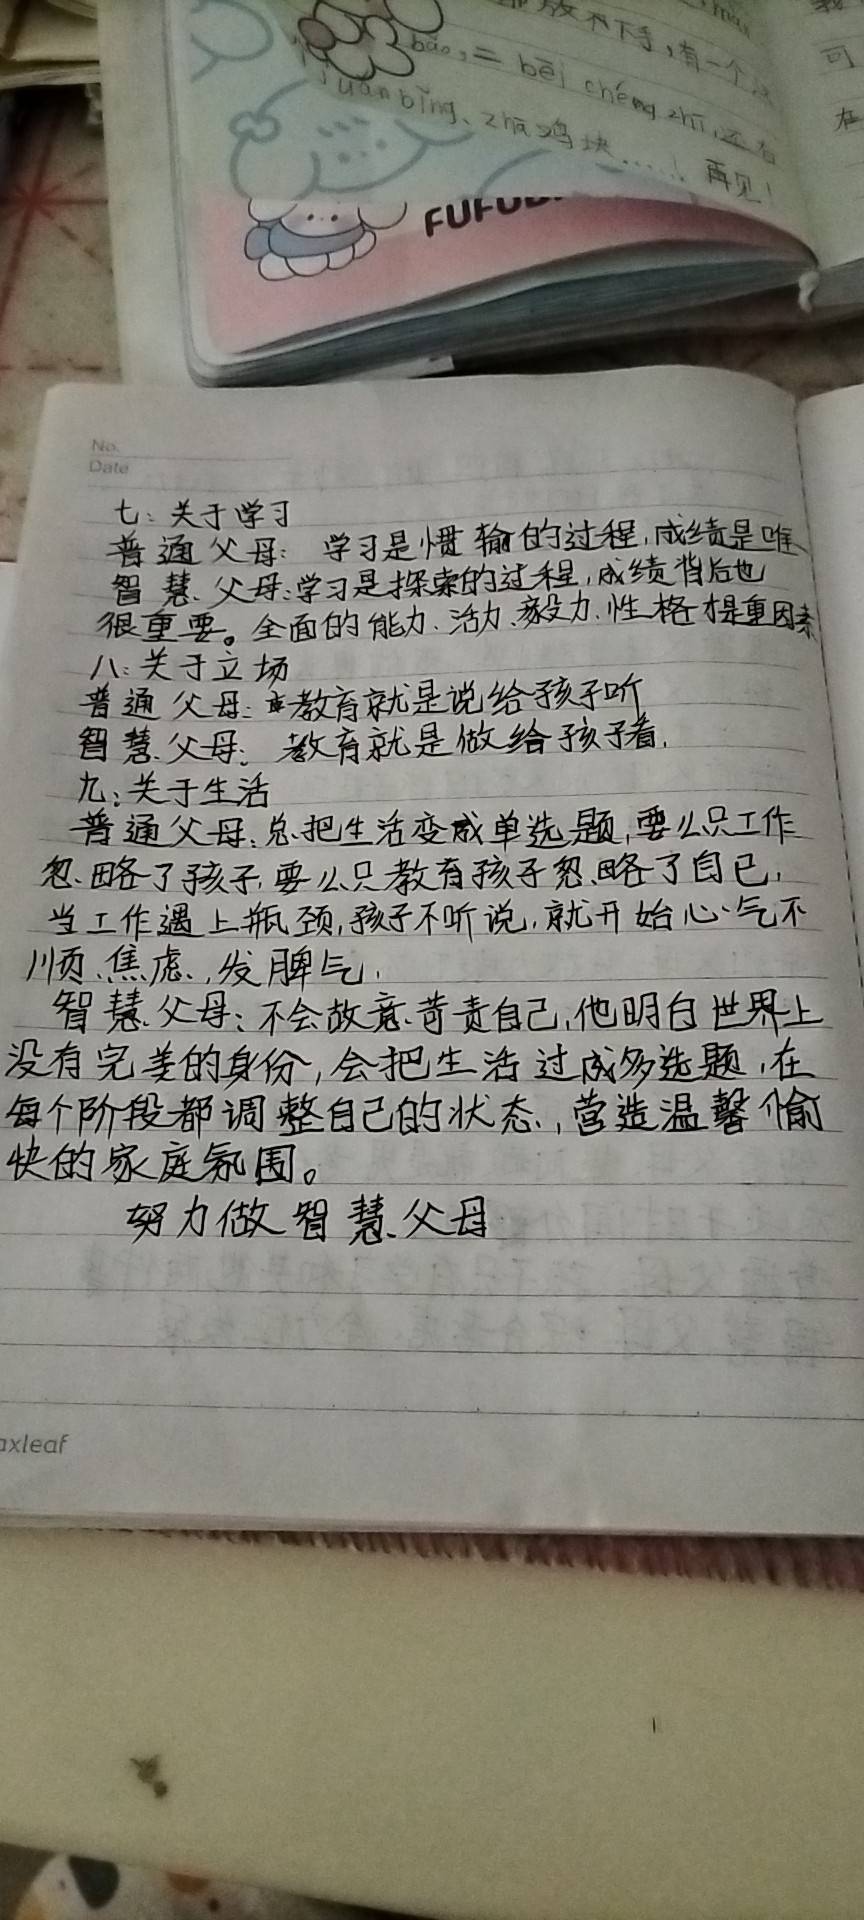 放不下手,有一个
bāo,二 bēi chéng zhī,还有
juǎn bǐng、zhà 鸡块……!再见!
FUFUD
可
在
No.
Date
七:关于学习
普通父母: 学习是惯输的过程,成绩是唯一
智慧父母:学习是探索的过程,成绩背后也
很重要。全面的能力、活力、毅力、性格才是重因素
八:关于立场
普通父母:教育就是说给孩子听
智慧父母:教育就是做给孩子看,
九:关于生活
普通父母:总把生活变成单选题,要么只工作
忽略了孩子,要么只教育孩子忽略了自己,
当工作遇上瓶颈,孩子不听说,就开始心气不
顺、焦虑,发脾气,
智慧父母:不会故意苛责自己,他明白世界上
没有完美的身份,会把生活过成多选题,在
每个阶段都调整自己的状态,营造温馨愉
快的家庭氛围。
努力做智慧父母
axleaf